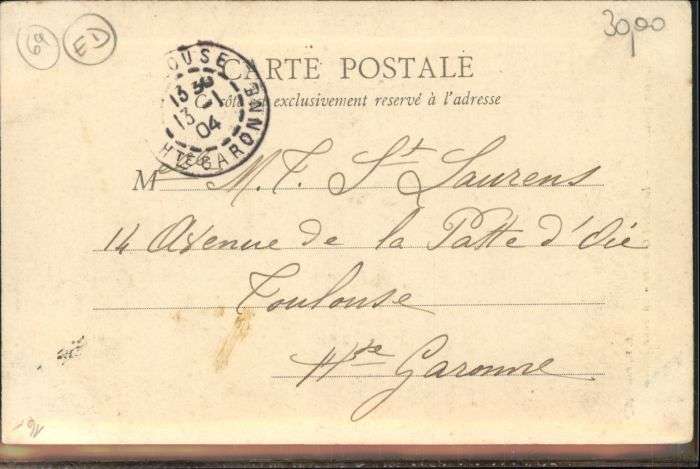 69
ED
30,00
CARTE POSTALE
Ce côté est exclusivement reservé à l'adresse
OUSE
13
13 1
04
HTE GARONNE
M lle M. T. St Laurens
14 Avenue de la Patte d'Oie
Toulouse
Hte Garonne